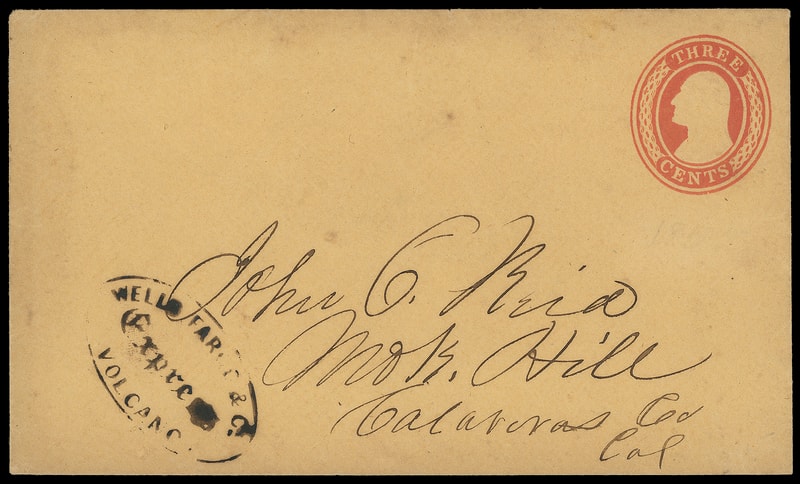 THREE
CENTS
John C. Reid
Mok. Hill
Calaveras Co
Cal
WELLS FARGO & Co.
Express
VOLCANO.